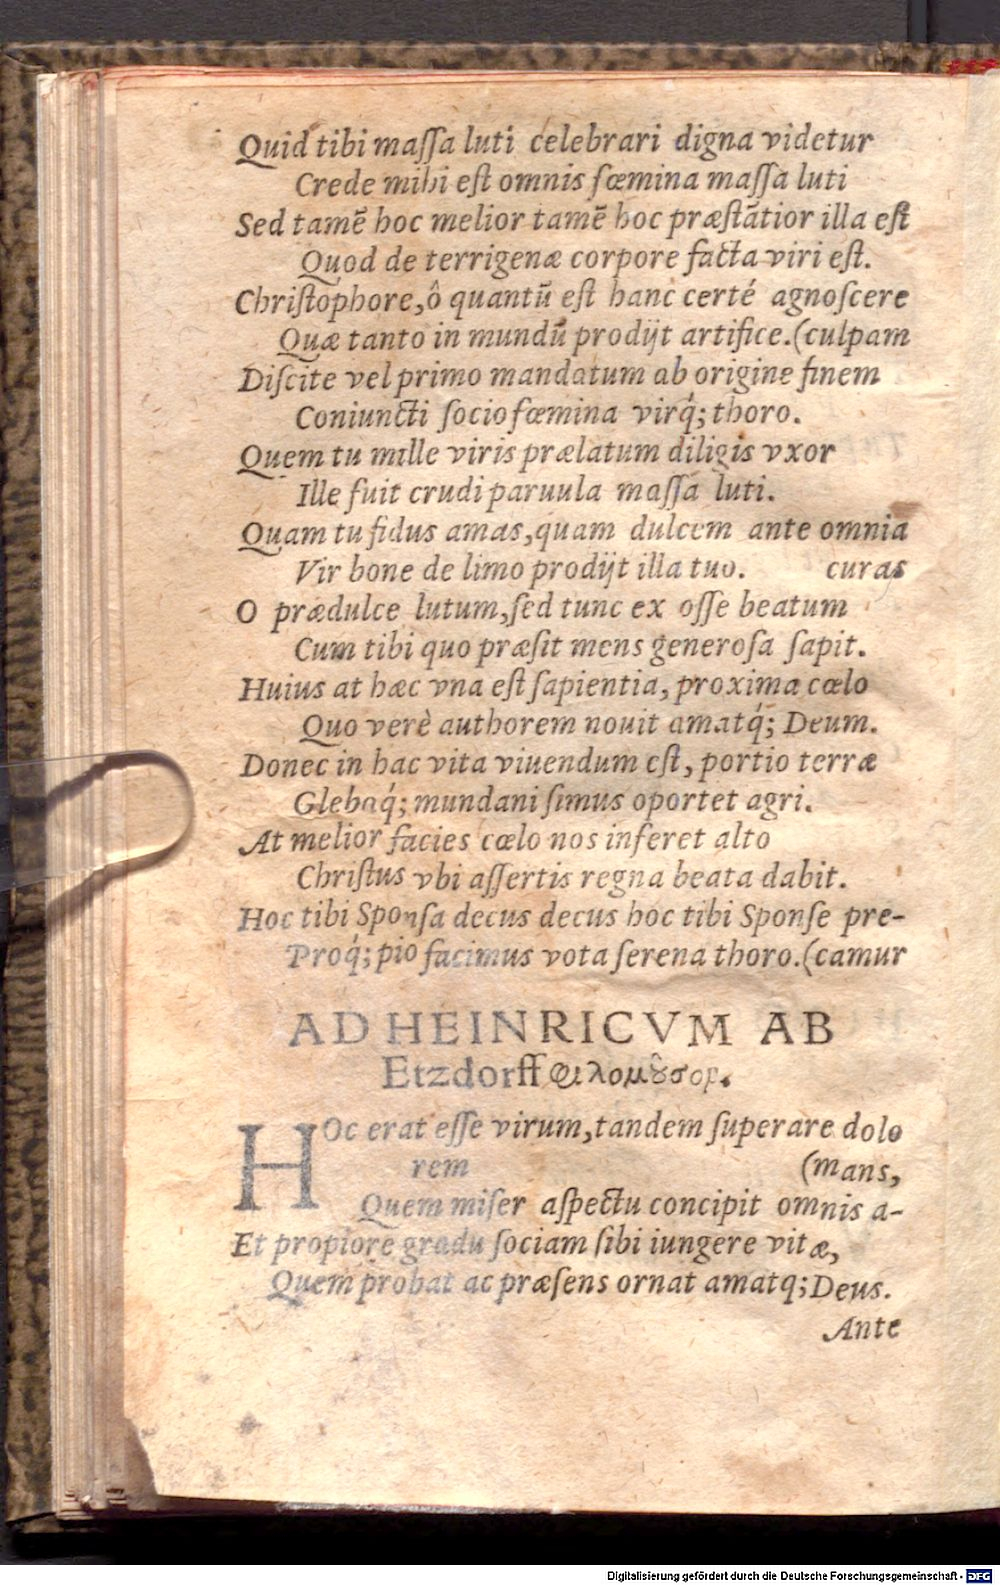 Quid tibi maſſa luti celebrari digna videtur
Crede mihi eſt omnis fœmina maſſa luti
Sed tamẽ hoc melior tamẽ hoc præſtãtior illa eſt
Quod de terrigenæ corpore facta viri eſt.
Chriſtophore,ô quantũ eſt hanc certé agnoſcere
Quæ tanto in mundũ prodijt artifice.(culpam
Diſcite vel primo mandatum ab origine finem
Coniuncti ſocio fœmina virq́; thoro.
Quem tu mille viris prælatum diligis vxor
Ille fuit crudi paruula maſſa luti.
Quam tu fidus amas,quam dulcem ante omnia
Vir bone de limo prodijt illa tuo. curas
O prædulce lutum,ſed tunc ex oſſe beatum
Cum tibi quo præſit mens generoſa ſapit.
Huius at hæc vna eſt ſapientia, proxima cœlo
Quo verè authorem nouit amatq́; Deum.
Donec in hac vita viuendum eſt, portio terræ
Glebaq́; mundani ſimus oportet agri.
At melior facies cœlo nos inferet alto
Chriſtus vbi aſſertis regna beata dabit.
Hoc tibi Sponſa decus decus hoc tibi Sponſe pre-
Proq́; pio facimus vota ſerena thoro.(camur
AD HEINRICVM AB
Etzdorff φιλομȣ͂σον.
HOc erat eſſe virum,tandem ſuperare dolo
rem (mans,
Quem miſer aſpectu concipit omnis a-
Et propiore gradu ſociam ſibi iungere vitæ,
Quem probat ac præſens ornat amatq;Deus.
Ante
Digitalisierung gefördert durch die Deutsche Forschungsgemeinschaft - DFG